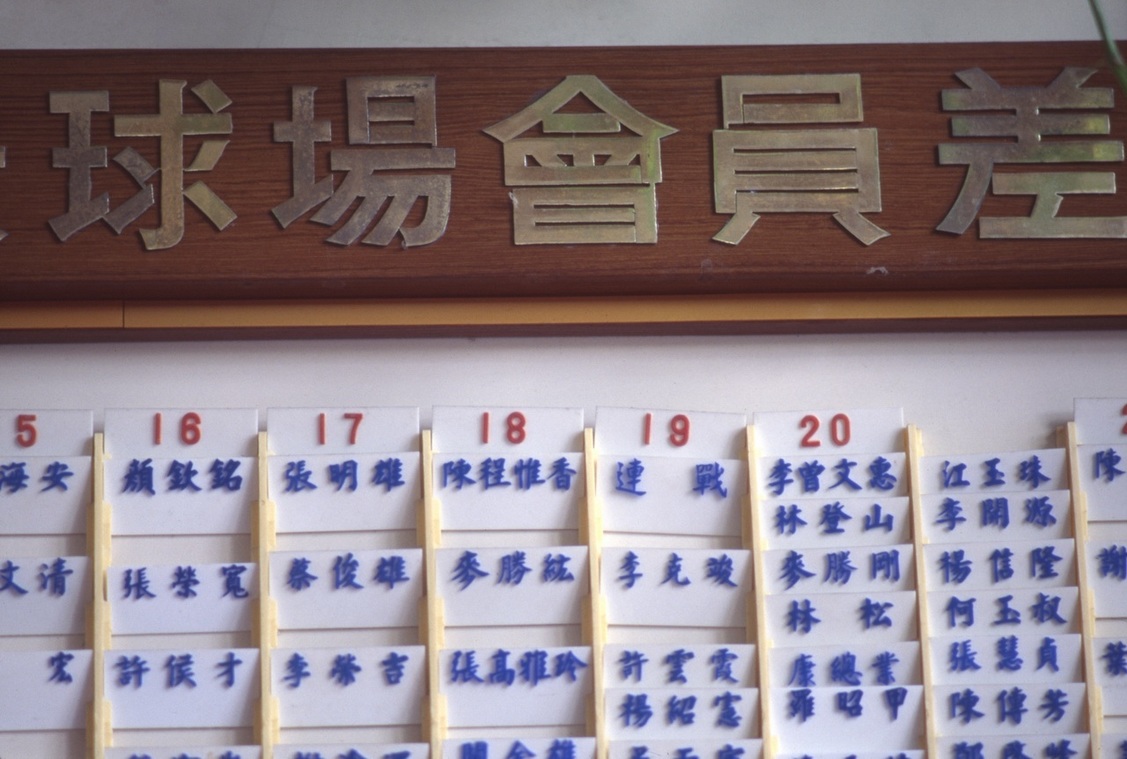 球場會員差
5 16 17 18 19 20
海安 顏欽銘 張明雄 陳程惟香 連戰 李曾文惠 江玉珠 陳
林登山 李開源
文清 張榮寬 蔡俊雄 麥勝紘 李克竣 麥勝剛 楊信隆 謝
林松 何玉叔
宏 許侯才 李榮吉 張高雅玲 許雲霞 康總業 張慧貞 葉
楊紹憲 羅昭甲 陳傳芳